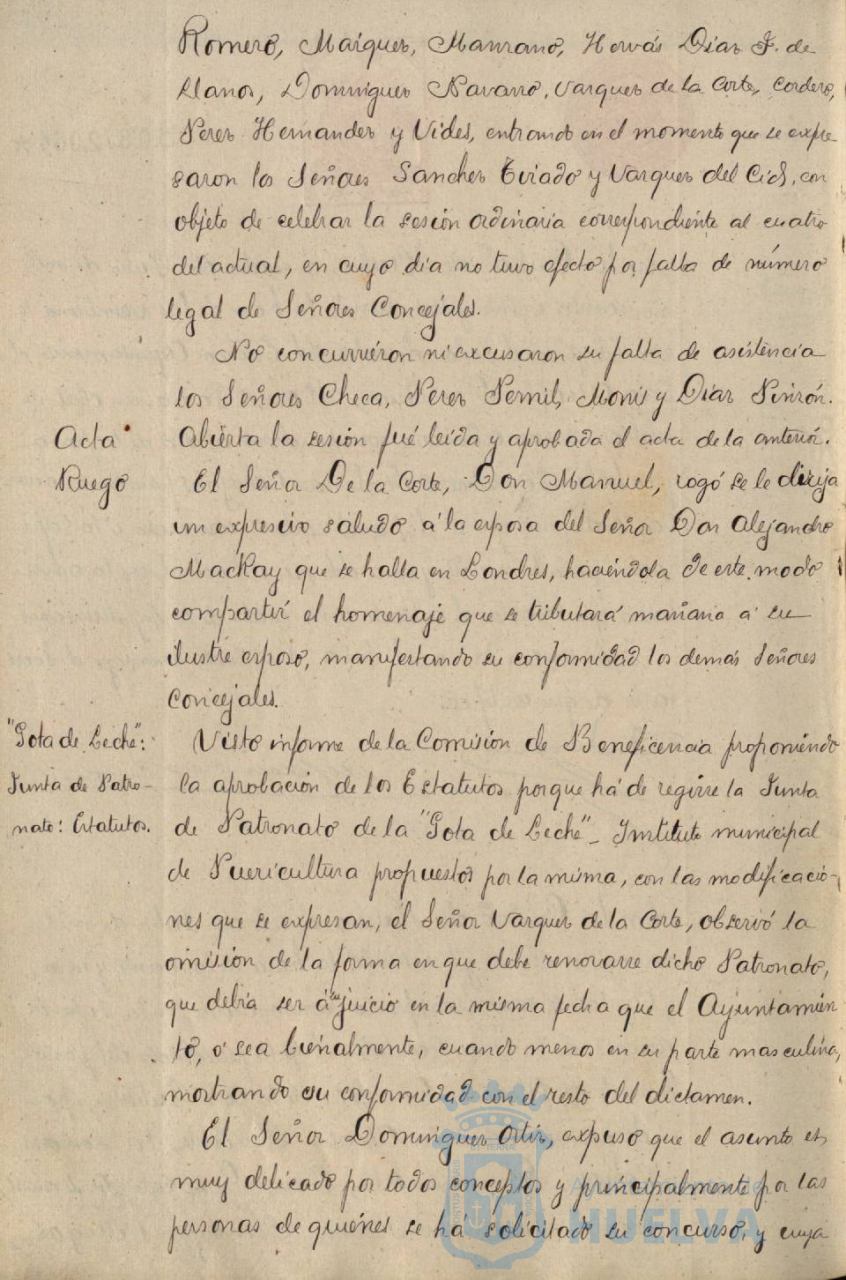 Romero, Marquez, Manzano, Hervás Diaz F. de
Llanos, Dominguez Navarro, Vazquez de la Corte, Cordero,
Perez Hernandez y Vides, entrando en el momento que se expre-
saron los Señores Sanchez Tirado y Vazquez del Cid, con
objeto de celebrar la sesión ordinaria correspondiente al cuatro
del actual, en cuyo día no tuvo efecto por falta de número
legal de Señores Concejales.
No concurrieron ni excusaron su falta de asistencia
los Señores Checa, Perez Pernil, Monís y Diaz Pinzón.
Acta
Abierta la sesión fué leida y aprobada el acta de la anterior.
Ruego
El Señor De la Corte, Don Manuel, rogó se le dirija
un expresivo saludo á la esposa del Señor Don Alejandro
Mackay que se halla en Londres, haciéndola de este modo
compartir el homenaje que se tributará mañana á su
ilustre esposo, manifestando su conformidad los demás Señores
Concejales.
"Gota de Leche":
Junta de Patro-
nato: Estatutos.
Visto informe de la Comisión de Beneficencia proponiendo
la aprobación de los Estatutos porque há de regirse la Junta
de Patronato de la "Gota de Leche" - Instituto municipal
de Puericultura propuestos por la misma, con las modificacio-
nes que se expresan, el Señor Vazquez de la Corte, observó la
omisión de la forma en que debe renovarse dicho Patronato,
que debía ser á su juicio en la misma fecha que el Ayuntamien
to, ó sea bienalmente, cuando menos en su parte masculina,
mostrando su conformidad con el resto del dictamen.
El Señor Dominguez Ortiz, expuso que el asunto es
muy delicado por todos conceptos y principalmente por las
personas de quiénes se há solicitado su concurso, y cuya
HUELVA